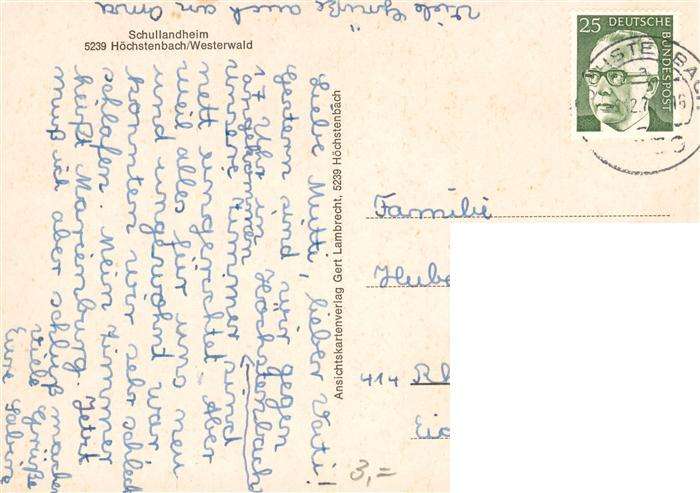 Viele Grüße auch an Oma
Schullandheim
5239 Höchstenbach/Westerwald
Liebe Mutti, lieber Vati!
Gestern sind wir gegen
17 Uhr in Höchstenbach
angekommen
unsere Zimmer sind
nett eingerichtet. Aber
weil alles für uns neu
und ungewohnt war
konnten wir sehr schlecht
schlafen. Mein Zimmer
heißt Marienburg. Jetzt
muß ich aber schluß machen
Viele Grüße
Eure Sabine
Ansichtskartenverlag Gert Lambrecht, 5239 Höchstenbach
25 DEUTSCHE BUNDESPOST
Familie
Hube
414 Rh
Eic
3,=